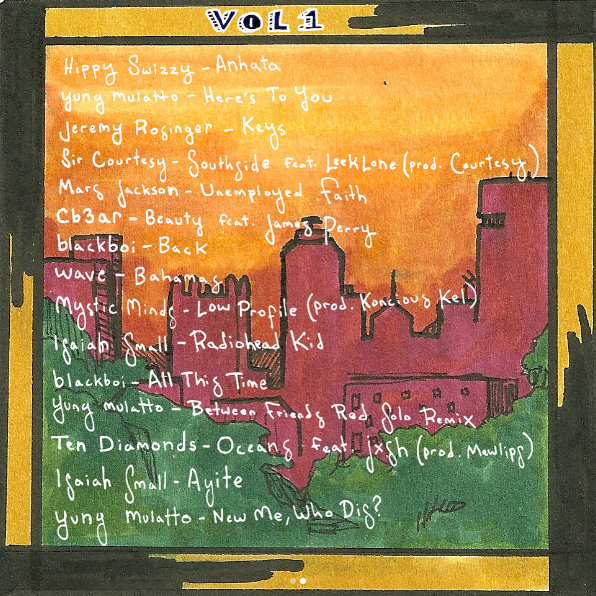 VOL 1
Hippy Swizzy - Anhata
yung mulatto - Here's To You
Jeremy Rosinger - Keys
Sir Courtesy - Southside feat. LeekLone (prod. Courtesy)
Marg Jackson - Unemployed Faith
Cb3ar - Beauty feat. James Perry
blackboi - Back
wave - Bahamas
Mystic Minds - Low Profile (prod. Koncious Kel)
Isaiah Small - Radiohead Kid
blackboi - All This Time
Yung mulatto - Between Friends Rod Solo Remix
Ten Diamonds - Oceans feat. jxsh (prod. Mewlips)
Isaiah Small - Ayite
Yung Mulatto - New Me, Who Dis?